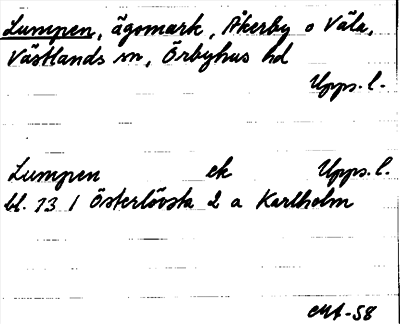 Lumpen, ägomark, Åkerby o Väla,
Västlands sn, Örbyhus hd
Upps. l.
Lumpen ek Upps. l.
bl. 73 / Österlövsta 2 a Karlholm
MA-58